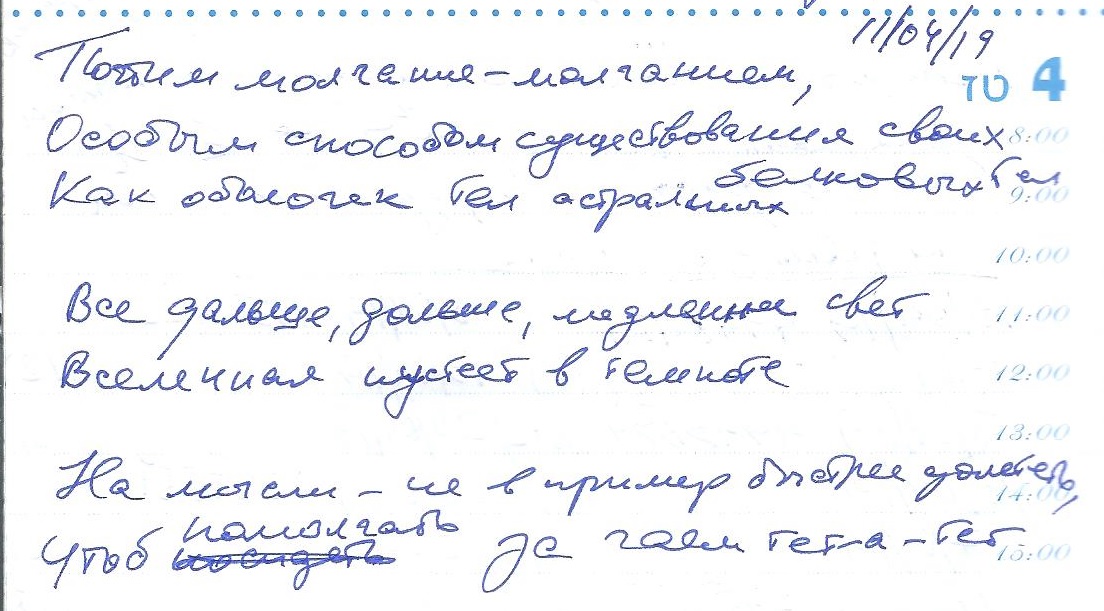 11/04/19
טז 4
Почтим молчание – молчанием,
Особым способом существования своих 8:00
белковых тел
Как оболочек тел астральных 9:00
10:00
Все дальше, дольше, медленнее свет 11:00
Вселенная пустеет в темноте 12:00
13:00
На мысли – не в пример быстрее долететь, 14:00
помолчать
Чтоб посидеть за чаем тет-а-тет 15:00